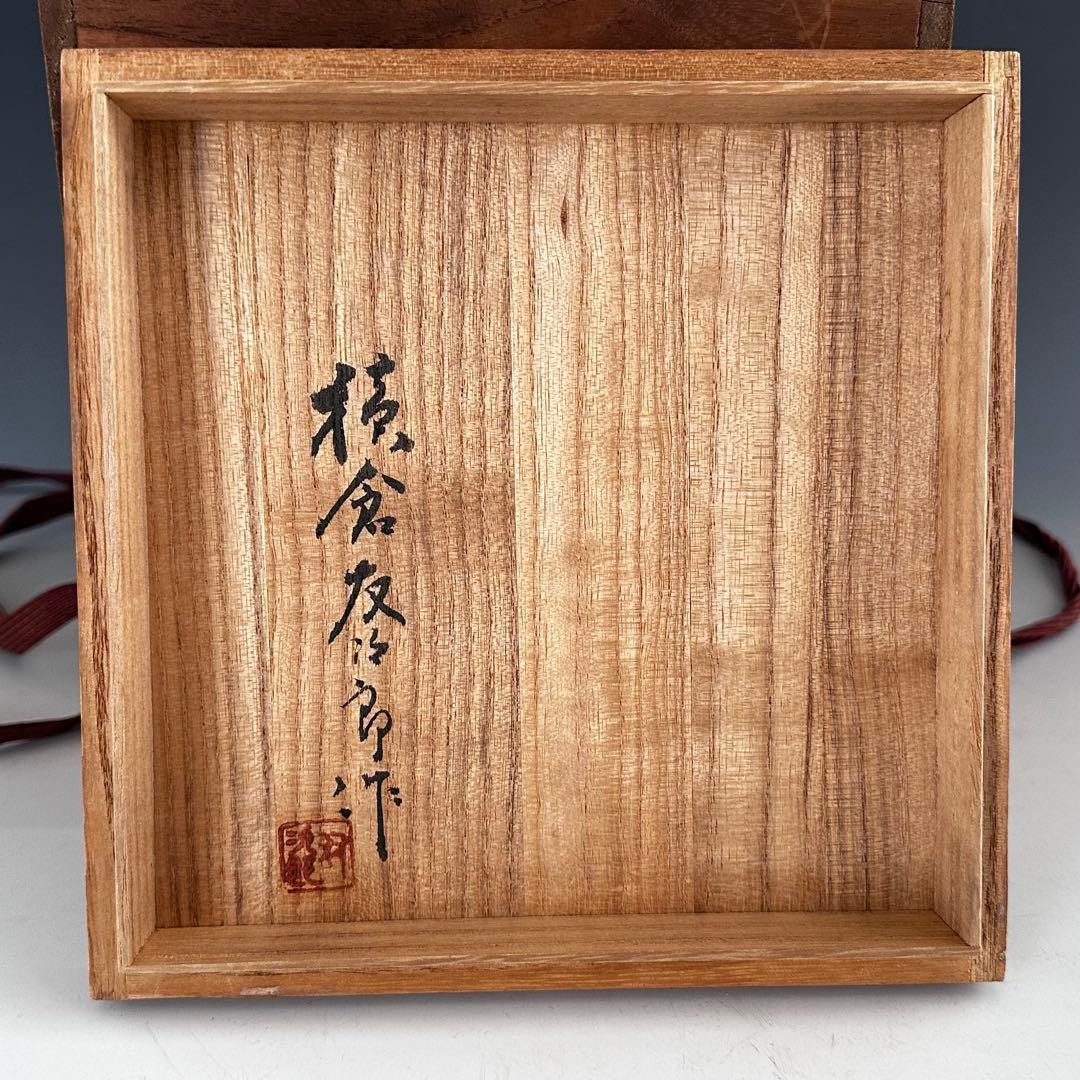 横倉友治郎作